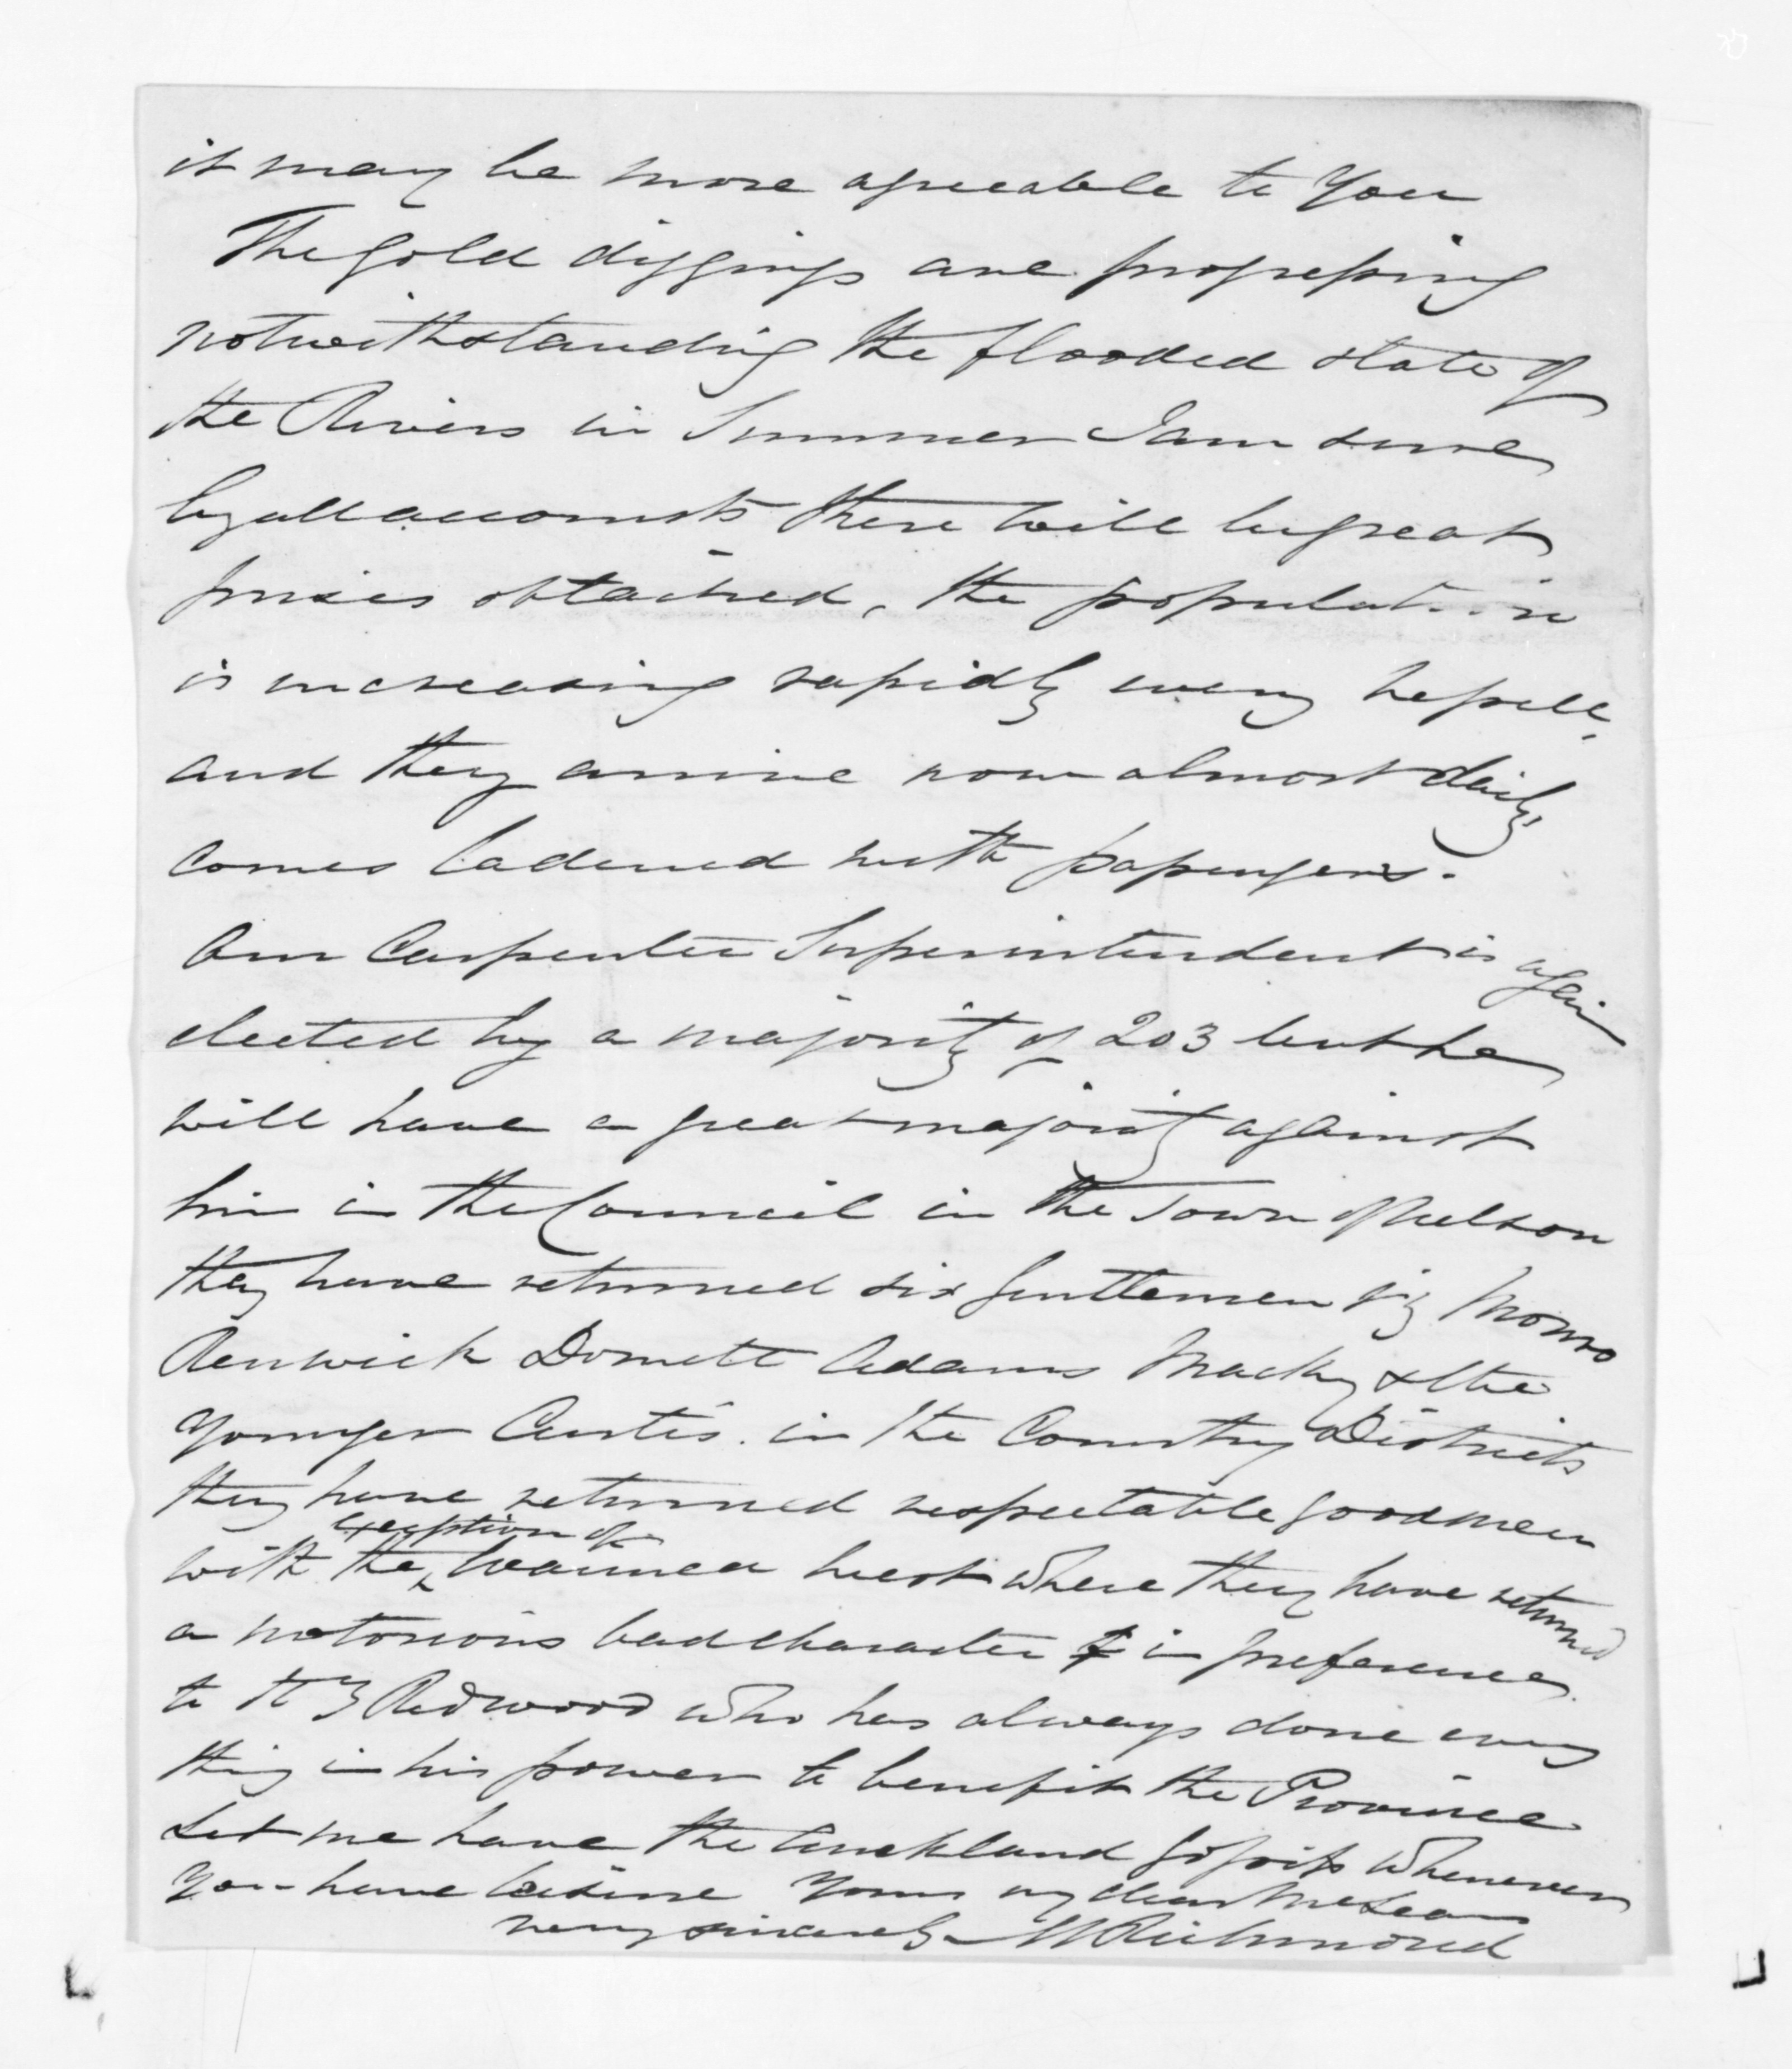 it may be more agreeable to you
The gold diggings are progressing
notwithstanding the flooded state of
the Rivers in Summer I am sure
by all accounts there will be great
prizes obtained, the population
is increasing rapidly every vessell,
and they arrive now almost daily,
comes ladened with passengers.
Our Carpenter Superintendent is again
elected by a majority of 203 but he
will have a great majority against
him in the Council in the Town of Nelson
they have returned six gentlemen viz Monro
Renwick Domett Adams Macky & the
younger Curtis. in the Country Districts
they have returned respectable good men
exception of
with the Waimea West where they have returned
a notorious bad character in preference
to Hy Redwood who has always done every
thing in his power to benefit the Province
Let me have the Auckland gossips whenever
you have leisure Yours my dear McLean
very sincerely M Richmond